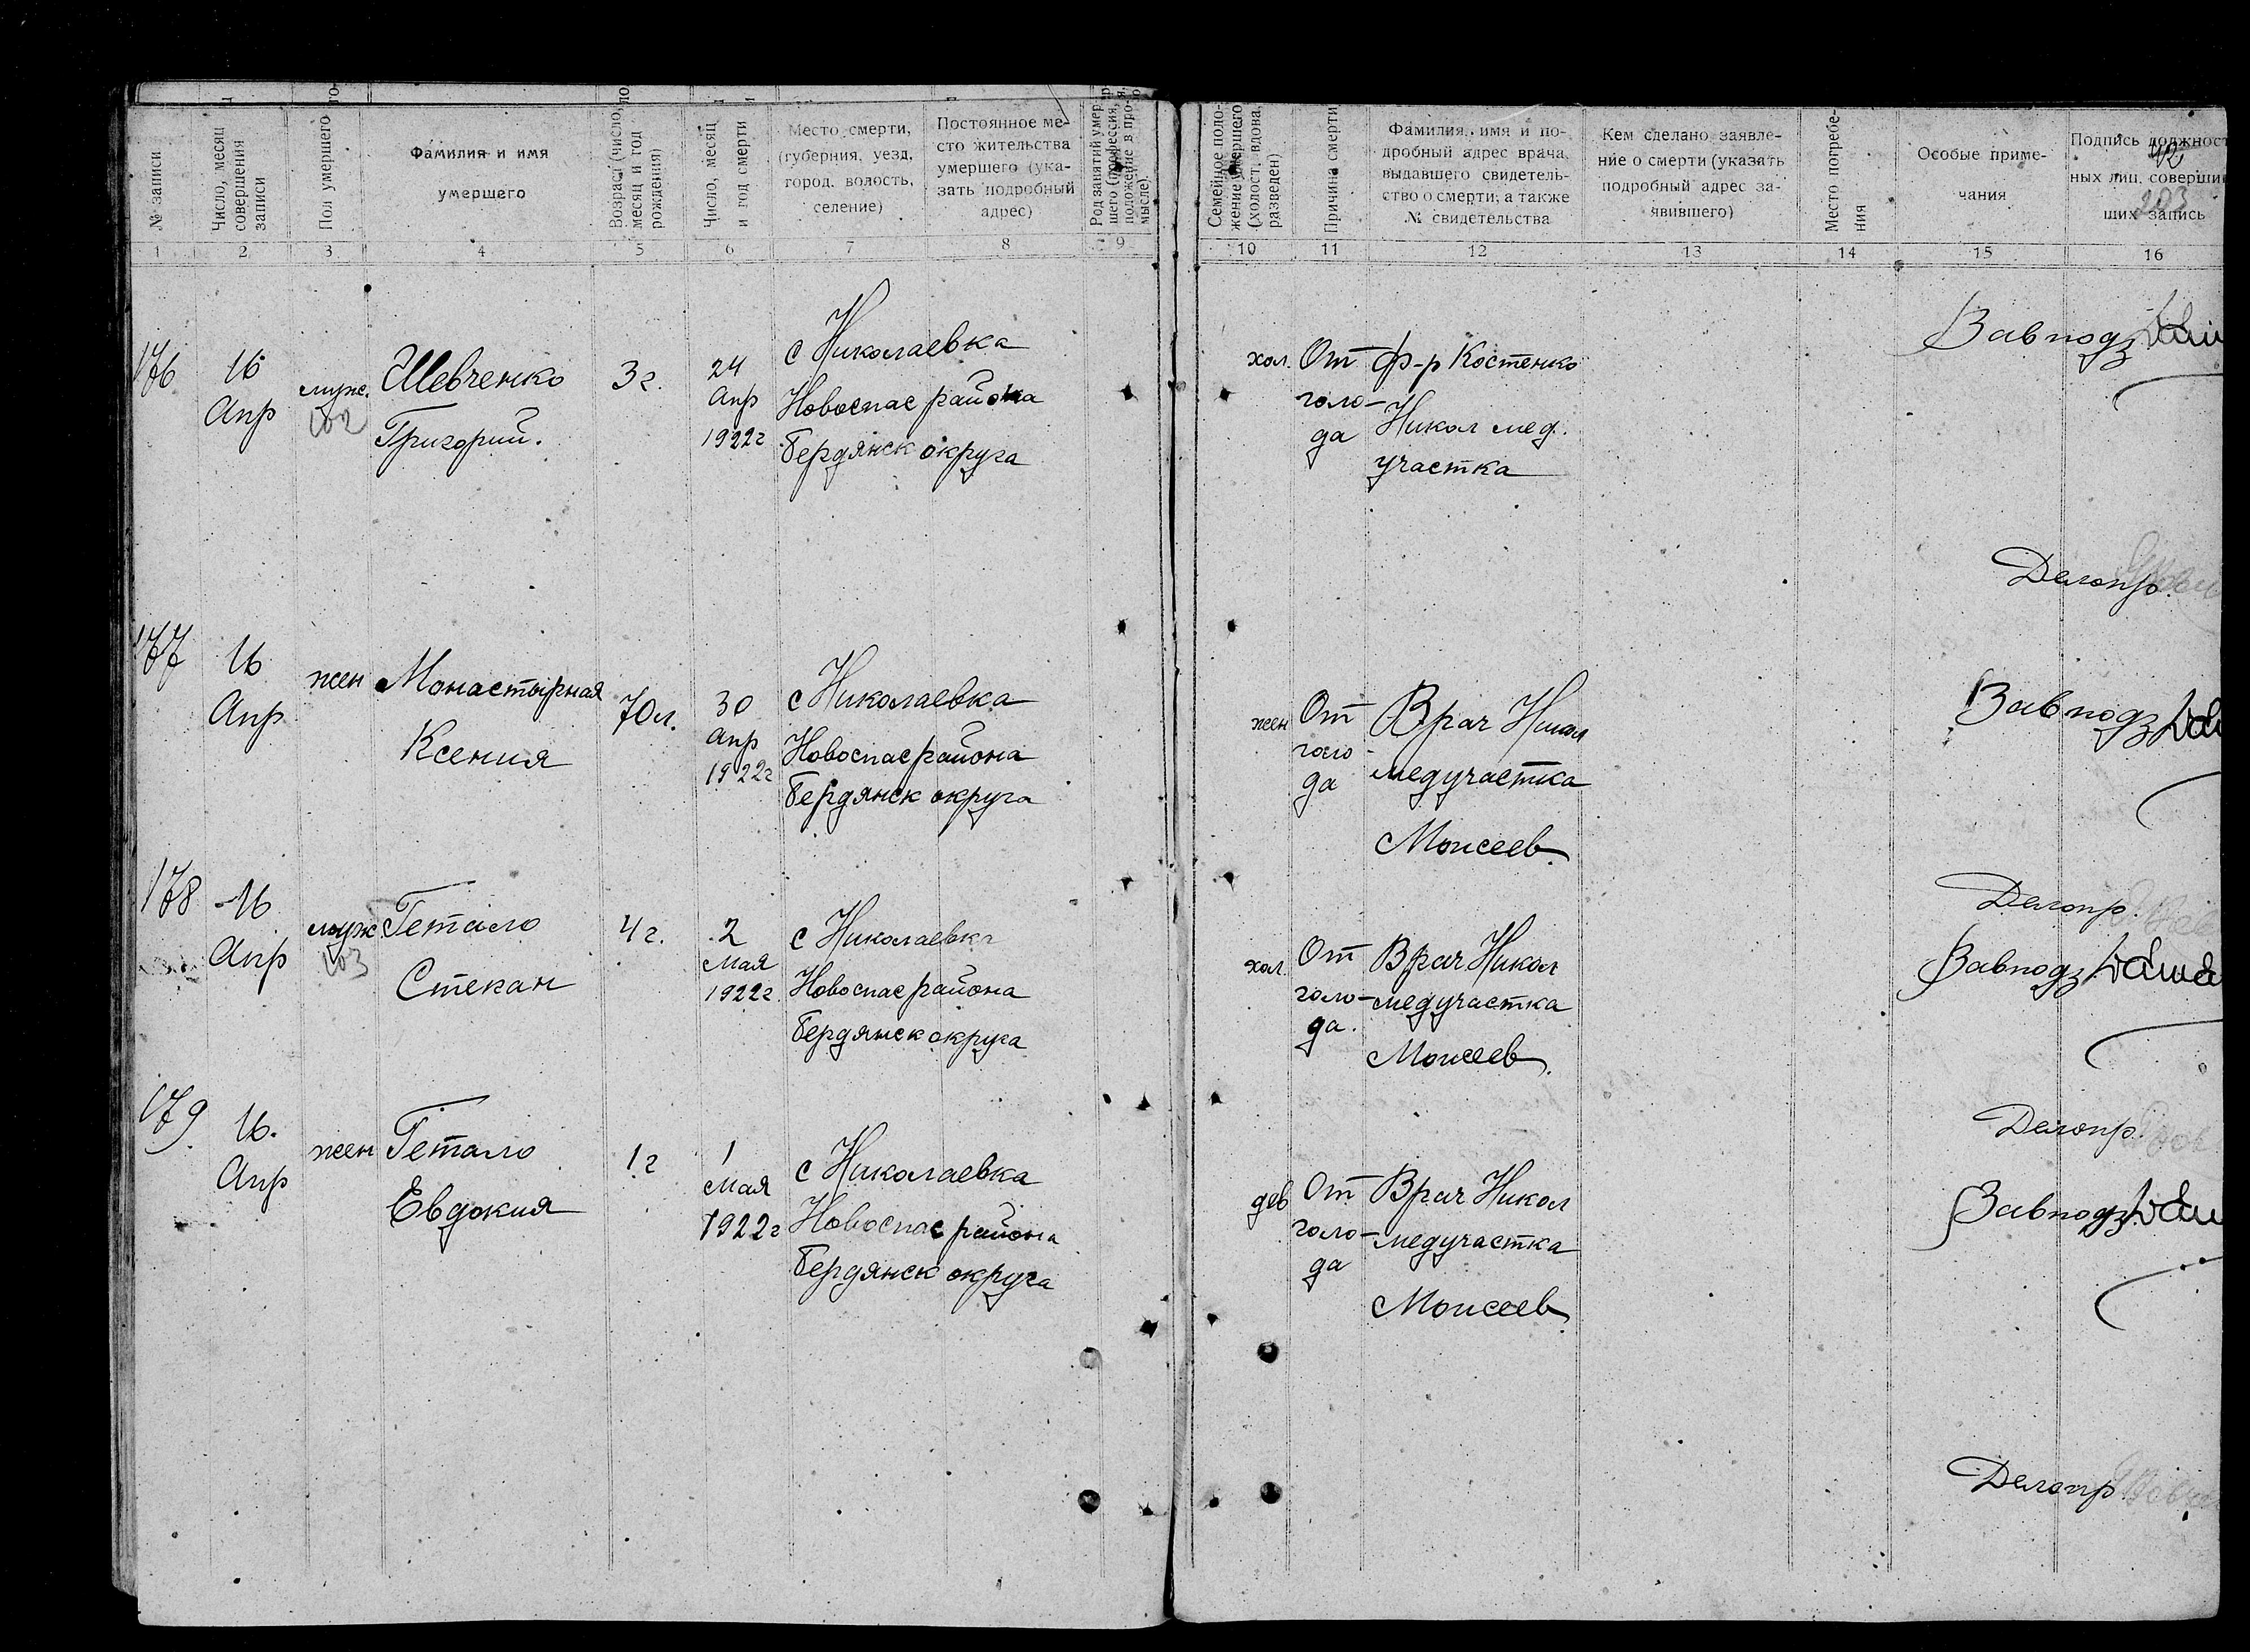 № записи
Число, месяц
совершения
записи
Пол умершего
Фамилия и имя
умершего
Возраст (число,
месяц и год
рождения)
Число, месяц
и год смерти
Место смерти,
(губерния, уезд,
город, волость,
селение)
Постоянное ме-
сто жительства
умершего (ука-
зать подробный
адрес)
Род занятий умер-
шего (профессия,
положение в про-
мысле).
Семейное поло-
жение умершего
(холост, вдова,
разведен)
Причина смерти
Фамилия, имя и по-
дробный адрес врача,
выдавшего свидетель-
ство о смерти, а также
№ свидетельства
Кем сделано заявле-
ние о смерти (указать
подробный адрес за-
явившего)
Место погребе-
ния
Особые приме-
чания
Подпись должност
92
ных лиц, соверши
203
ших запись
1 2 3 4 5 6 7 8 9 10 11 12 13 14 15 16
176
16
Апр
муж.
102
Шевченко
Григорий.
3 г.
24
Апр
1922г
с Николаевка
Новоспас района
Бердянск округа
хол.
От
голо-
да
Ф-р Костенко
Никол мед.
участка
Завподз
Делопр.
177
16
Апр
жен
Монастырная
Ксения
70л.
30
апр
1922г
с Николаевка
Новоспас района
Бердянск округа
жен
От
голо-
да
Врач Никол
медучастка
Моисеев
Завподз
Делопр.
178
16
Апр
муж
103
Гетало
Степан
4 г.
2
мая
1922г.
с Николаевка
Новоспас района
Бердянск округа
хол.
От
голо-
да.
Врач Никол
медучастка
Моисеев
Завподз
Делопр.
179
16.
Апр
жен
Гетало
Евдокия
1 г
1
мая
1922г
с Николаевка
Новоспас района
Бердянск округа
дев
От
голо-
да
Врач Никол
медучастка
Моисеев
Завподз
Делопр.